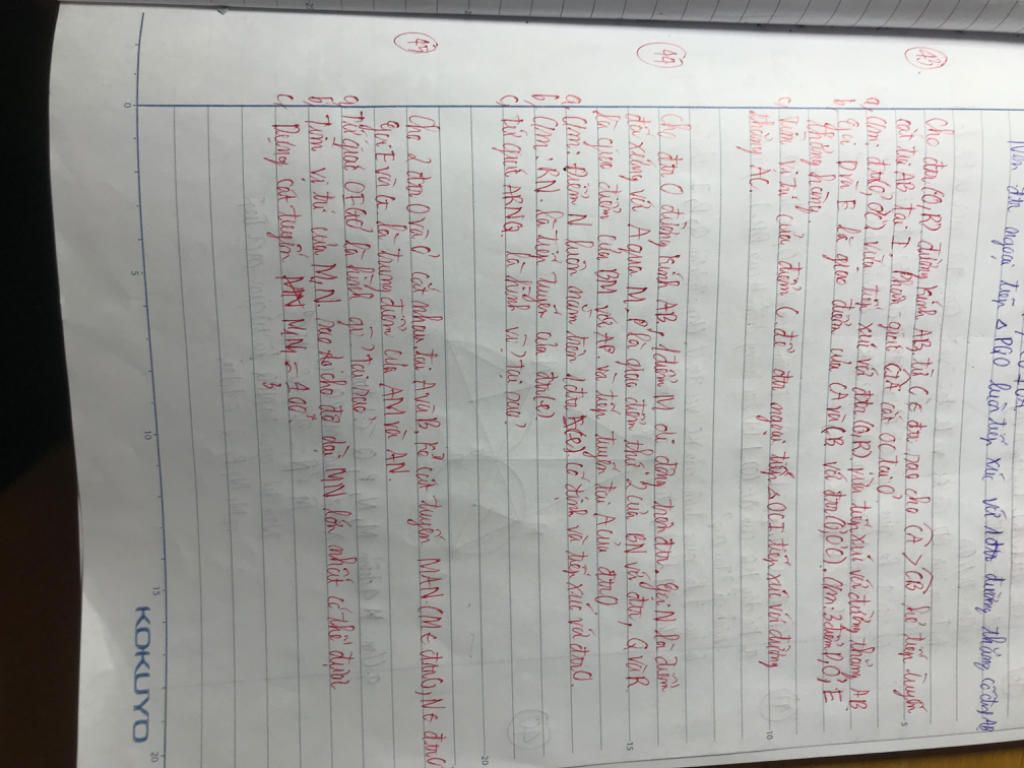 Nên đtn ngoại tiếp △PQO luôn tiếp xúc với 1 đtn đường thẳng cố định AB
43
Cho đtn(O,R) đường kính AB, từ C ∈ đtn sao cho CA > CB kẻ tiếp tuyến
cắt tia AB tại I. Phân giác CIA cắt OC tại O'
a, Cm: đtn(O',O'C) vừa tiếp xúc với đtn (O,R) vừa tiếp xúc với đường thẳng AB
b, gọi D và E là giao điểm của CA và CB với đtn(O',O'C). Cm: 3 điểm D, O', E
thẳng hàng
c, Tìm vị trí của điểm C để đtn ngoại tiếp △OCI tiếp xúc với đường
thẳng AC.
44
Cho đtn O đường kính AB, 1 điểm M di động trên đtn. gọi N là điểm
đối xứng với A qua M, P là giao điểm thứ 2 của BN với đtn, Q và R
là giao điểm của BM với AP và tiếp tuyến tại A của đtn O
a, Cm: Điểm N luôn nằm trên 1 đtn cố định và tiếp xúc với đtn O.
b, Cm: RN là tiếp tuyến của đtn(c)
c, tứ giác ARNQ là hình gì? tại sao?
45
Cho 2 đtn O và O' cắt nhau tại A và B. Kẻ cát tuyến MAN (M ∈ đtn O, N ∈ đtn O')
gọi E và G là trung điểm của AM và AN.
a, tứ giác OEGO' là hình gì? Tại sao?
b, Tìm vị trí của M, N sao cho độ dài MN lớn nhất có thể được
c, Dựng cát tuyến M₁N₁ = 4/3 OO'
5
10
15
20
5
10
15
20
0
KOKUYO